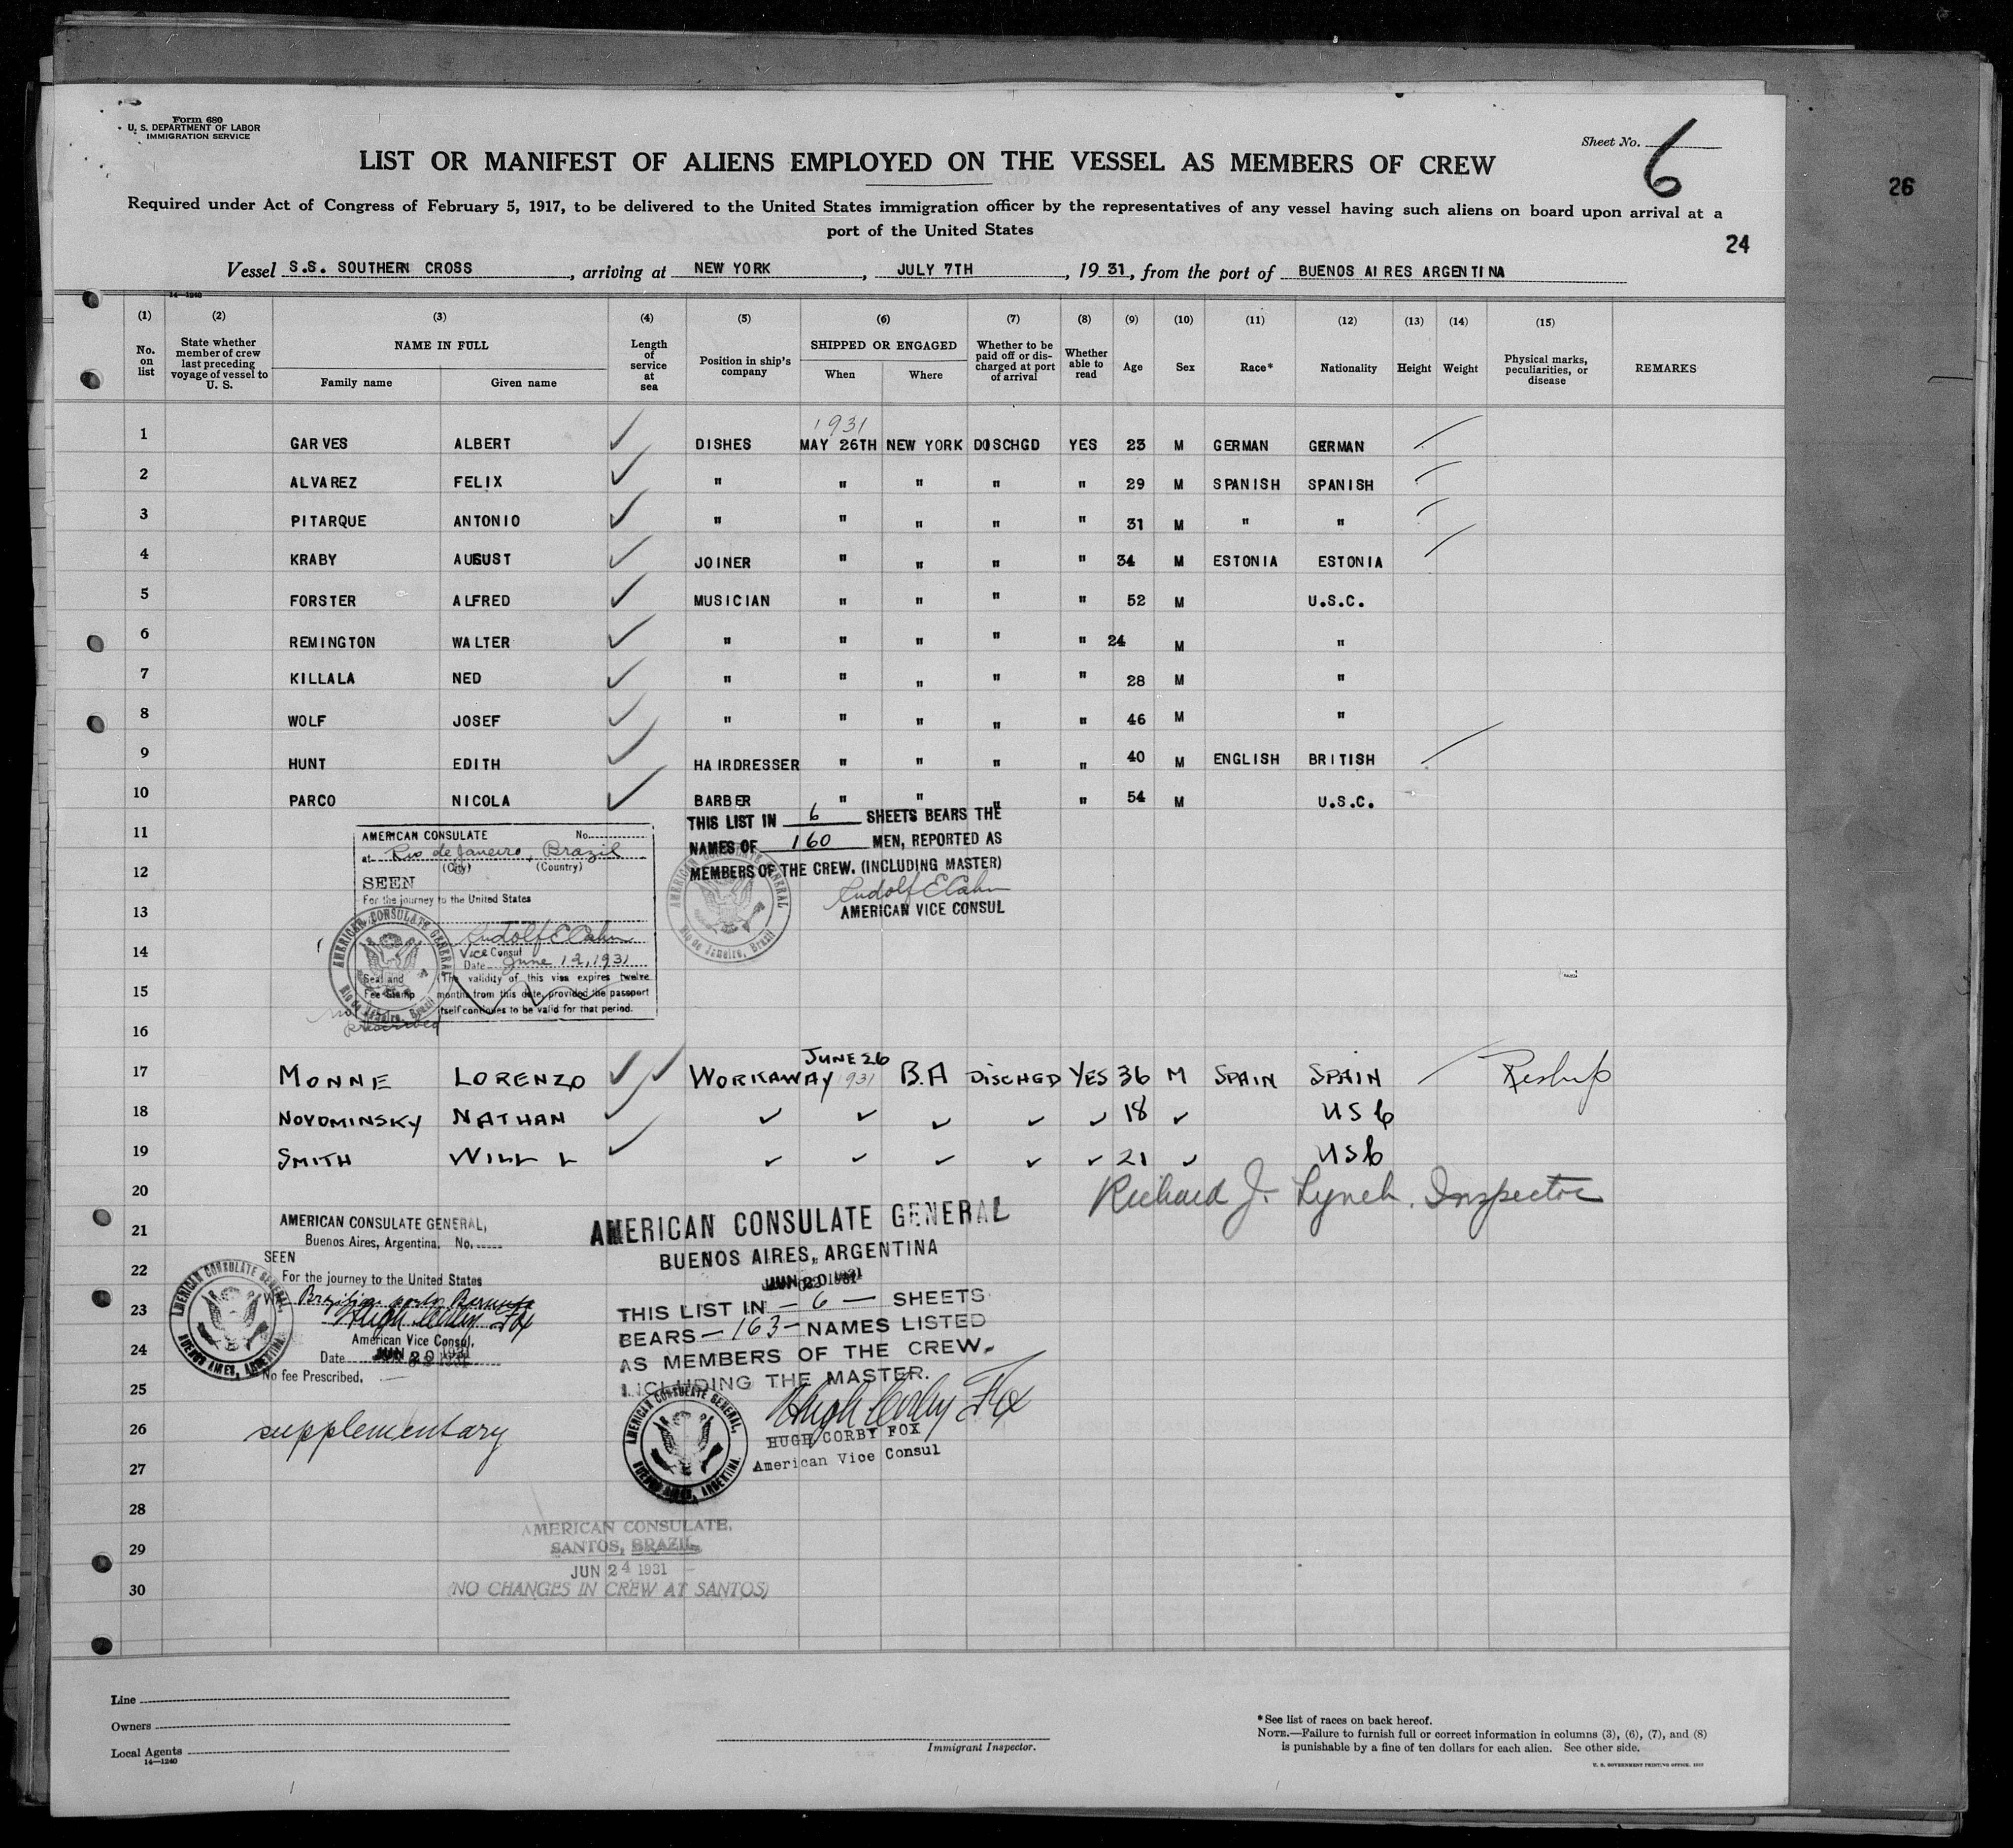 Form 680
U. S. DEPARTMENT OF LABOR
IMMIGRATION SERVICE
Sheet No. 6
LIST OR MANIFEST OF ALIENS EMPLOYED ON THE VESSEL AS MEMBERS OF CREW
26
Required under Act of Congress of February 5, 1917, to be delivered to the United States immigration officer by the representatives of any vessel having such aliens on board upon arrival at a
port of the United States
24
Vessel S.S. SOUTHERN CROSS, arriving at NEW YORK, JULY 7TH, 1931, from the port of BUENOS AIRES ARGENTINA
14—1240
(1) (2) (3) (4) (5) (6) (7) (8) (9) (10) (11) (12) (13) (14) (15)
No. on list
State whether member of crew last preceding voyage of vessel to U. S.
NAME IN FULL
Family name Given name
Length of service at sea
Position in ship's company
SHIPPED OR ENGAGED
When Where
Whether to be paid off or discharged at port of arrival
Whether able to read
Age
Sex
Race*
Nationality
Height
Weight
Physical marks, peculiarities, or disease
REMARKS
1931
1 GARVES ALBERT ✓ DISHES MAY 26TH NEW YORK DOSCHGD YES 23 M GERMAN GERMAN
2 ALVAREZ FELIX ✓ " " " " " 29 M SPANISH SPANISH
3 PITARQUE ANTONIO ✓ " " " " " 31 M " "
4 KRABY AUGUST ✓ JOINER " " " " 34 M ESTONIA ESTONIA
5 FORSTER ALFRED ✓ MUSICIAN " " " " 52 M U.S.C.
6 REMINGTON WALTER ✓ " " " " " 24 M "
7 KILLALA NED ✓ " " " " " 28 M "
8 WOLF JOSEF ✓ " " " " " 46 M "
9 HUNT EDITH ✓ HAIRDRESSER " " " " 40 M ENGLISH BRITISH
10 PARCO NICOLA ✓ BARBER " " " " 54 M U.S.C.
11
12
13
14
15
16
AMERICAN CONSULATE No.
at Rio de Janeiro, Brazil
(City) (Country)
SEEN
For the journey to the United States
Rudolf E Cahn
Vice Consul
Date June 12, 1931
Seal and Fee Stamp
(The validity of this visa expires twelve
months from this date, provided the passport
itself continues to be valid for that period.
prescribed
AMERICAN CONSULATE GENERAL
Rio de Janeiro, Brazil
THIS LIST IN 6 SHEETS BEARS THE
NAMES OF 160 MEN, REPORTED AS
MEMBERS OF THE CREW. (INCLUDING MASTER)
Rudolf E Cahn
AMERICAN VICE CONSUL
AMERICAN CONSULATE GENERAL
Rio de Janeiro, Brazil
JUNE 26
17 MONNE LORENZO ✓✓ WORKAWAY 1931 B.A DISCHGD YES 36 M SPAIN SPAIN Reship
18 NOVOMINSKY NATHAN ✓ ✓ ✓ ✓ ✓ ✓ 18 ✓ USC
19 SMITH WILL L ✓ ✓ ✓ ✓ ✓ ✓ 21 ✓ USC
20 Richard J. Lynch. Inspector
21
22
23
24
25
26
27
28
29
30
AMERICAN CONSULATE GENERAL,
Buenos Aires, Argentina. No.
SEEN
For the journey to the United States
Brazilian ports Bermuda
Hugh Corby Fox
American Vice Consul.
Date JUN 20 1931
No fee Prescribed.
AMERICAN CONSULATE GENERAL,
BUENOS AIRES, ARGENTINA.
supplementary
AMERICAN CONSULATE GENERAL
BUENOS AIRES, ARGENTINA
JUN 20 1931
THIS LIST IN — 6 — SHEETS
BEARS — 163 — NAMES LISTED
AS MEMBERS OF THE CREW.
INCLUDING THE MASTER.
Hugh Corby Fox
HUGH CORBY FOX
American Vice Consul
AMERICAN CONSULATE GENERAL,
BUENOS AIRES, ARGENTINA.
AMERICAN CONSULATE,
SANTOS, BRAZIL,
JUN 24 1931
(NO CHANGES IN CREW AT SANTOS)
Line
Owners
Local Agents
14—1240
Immigrant Inspector.
*See list of races on back hereof.
NOTE.—Failure to furnish full or correct information in columns (3), (6), (7), and (8)
is punishable by a fine of ten dollars for each alien. See other side.
U. S. GOVERNMENT PRINTING OFFICE